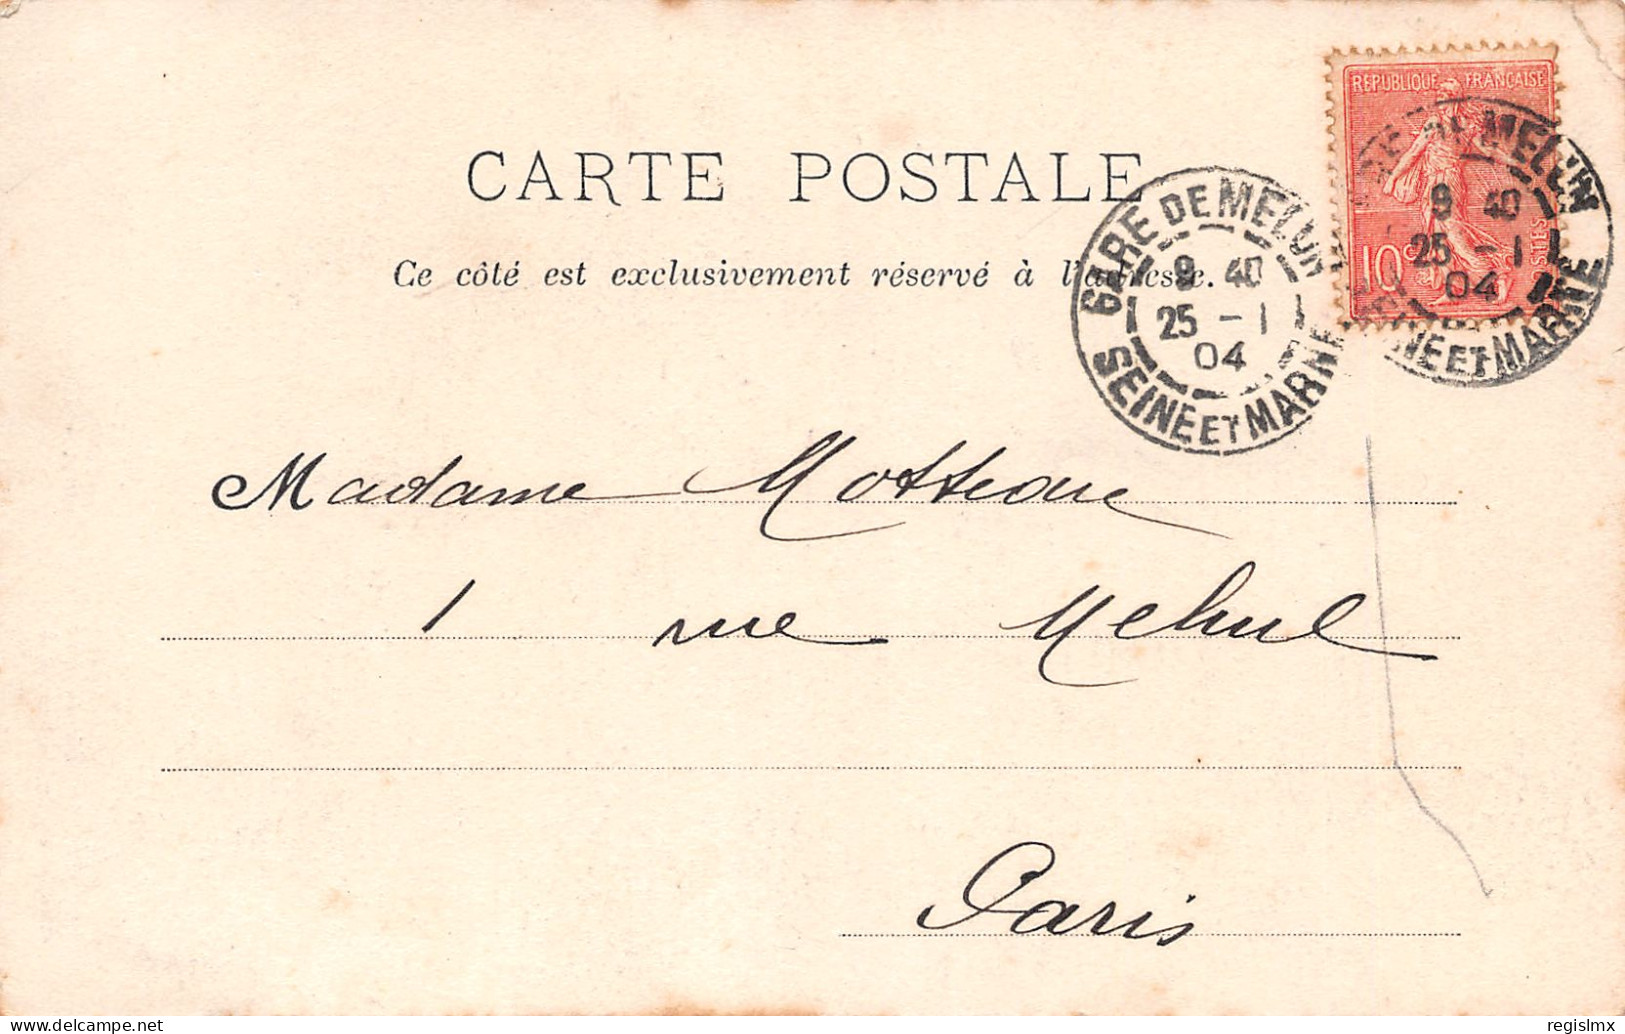 RÉPUBLIQUE FRANÇAISE
10c POSTES
CARTE POSTALE
Ce côté est exclusivement réservé à l'adresse.
GARE DE MELUN
9 40
25 - 1
04
SEINE ET MARNE
GARE DE MELUN
9 40
25 - 1
04
SEINE ET MARNE
Madame Motteau
1 rue Mehul
Paris
www.delcampe.net
regislmx